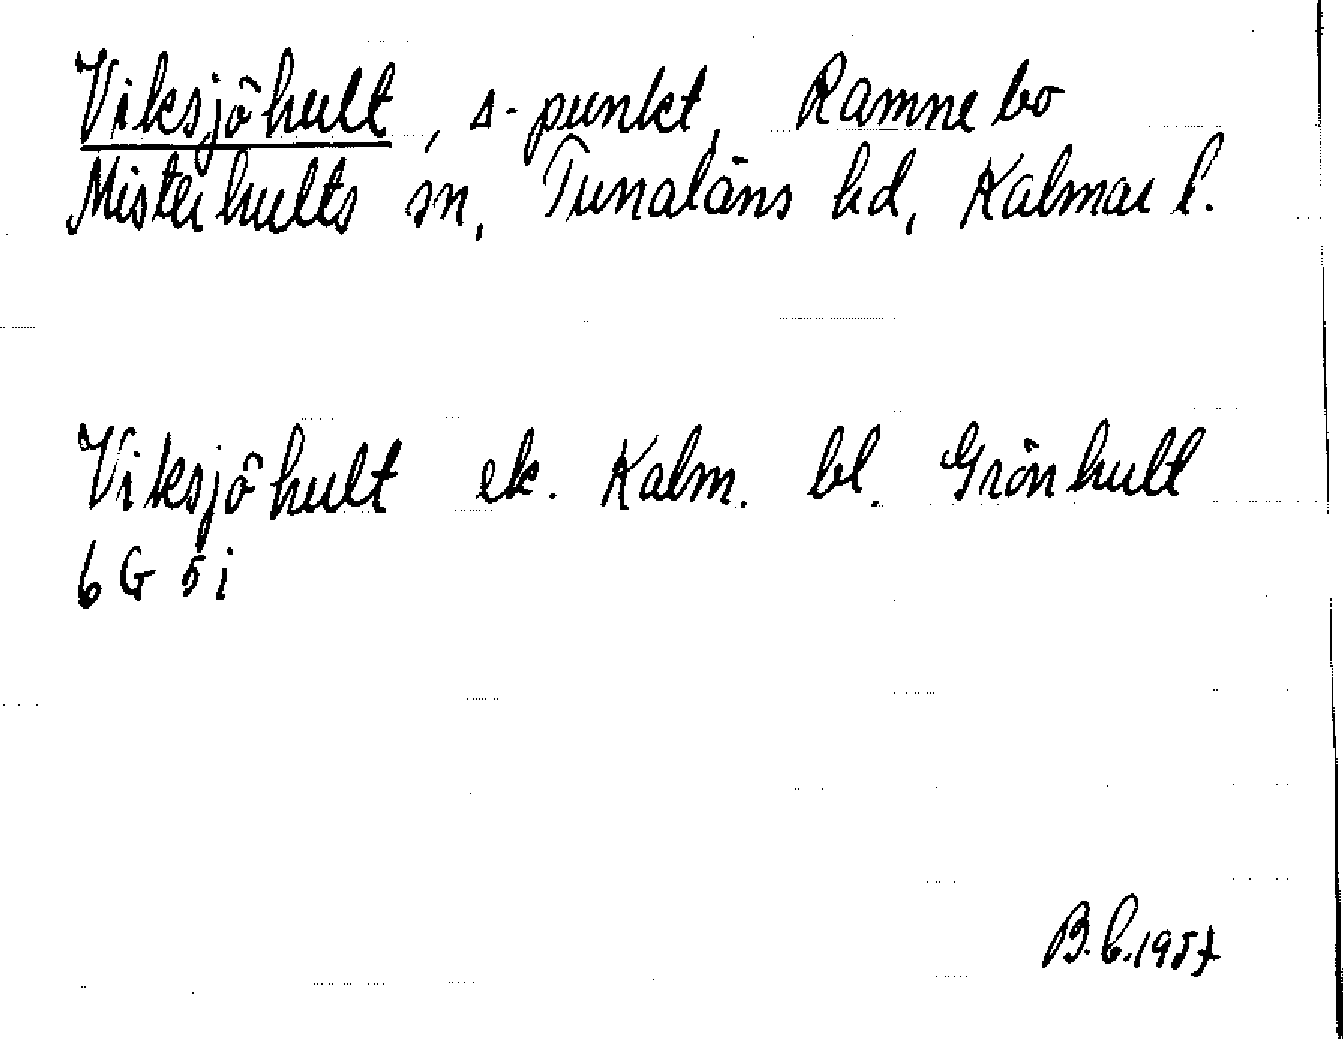 Viksjöhult, s-punkt, Ramnebo
Misterhults sn, Tunaläns hd, Kalmar l.
Viksjöhult ek. Kalm. bl. Grönhult
6 G 5 i
1957